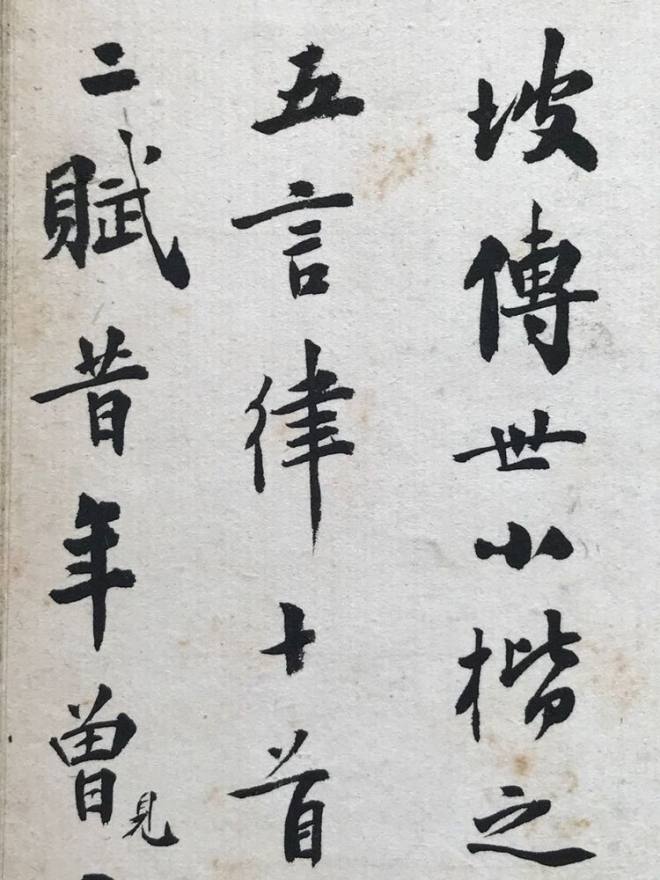 坡傳世小楷之
五言律十首
二賦昔年曾見